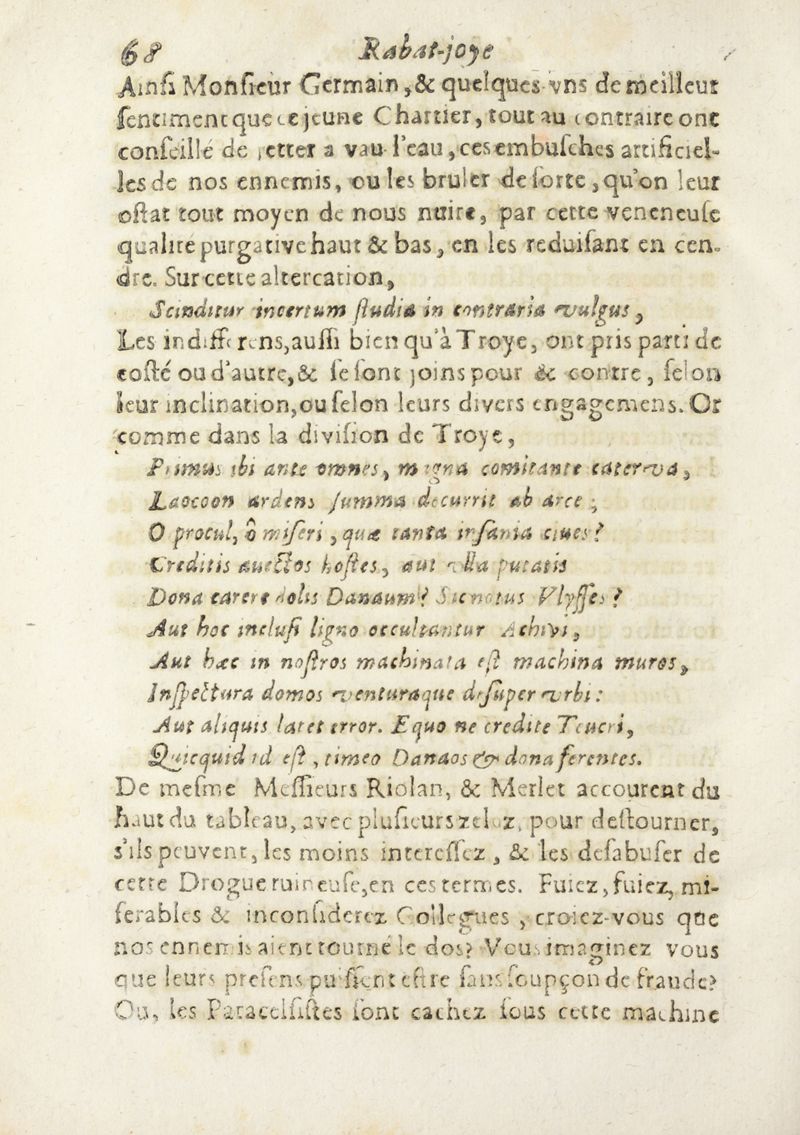 68 Rabat-joye
Ainſi Monſieur Germain, & quelques-vns de meilleur
ſentiment que ce jeune Chartier, tout au contraire ont
conſeillé de jetter a vau-l'eau, ces embuſches artificiel-
les de nos ennemis, ou les bruler de ſorte, qu'on leur
oſtat tout moyen de nous nuire, par cette veneneuſe
qualité purgative haut & bas, en les reduiſant en cen-
dre. Sur cette altercation,
Scinditur incertum ſtudia in contraria vulgus,
Les indifferens, auſſi bien qu'à Troye, ont pris parti de
coſté ou d'autre, & ſe ſont joins pour & contre, ſelon
leur inclination, ou ſelon leurs divers engagemens. Or
comme dans la diviſion de Troye,
Primus ibi ante omnes, magna comitante caterva,
Laocoon ardens ſumma decurrit ab arce;
O procul, ô miſeri, quæ tanta inſania ciues?
Creditis auectos hoſtes, aut vlla putatis
Dona carere dolis Danaum? Sic notus Vlyſſes?
Aut hoc incluſi ligno occultantur Achivi,
Aut hæc in noſtros machinata eſt machina muros,
Inſpectura domos venturaque deſuper vrbi:
Aut aliquis latet error. Equo ne credite Teucri,
Quicquid id eſt, timeo Danaos & dona ferentes.
De meſme Meſſieurs Riolan, & Merlet accourent du
haut du tableau, avec pluſieurs zelez, pour deſtourner,
s'ils peuvent, les moins intereſſez, & les deſabuſer de
cette Drogue ruineuſe, en ces termes. Fuiez, fuiez, mi-
ſerables & inconſiderez Collegues, croiez-vous que
nos ennemis aient tourné le dos? Vous imaginez vous
que leurs preſens puiſſent eſtre ſans ſoupçon de fraude?
Ou, les Paracelſiſtes ſont cachez ſous cette machine